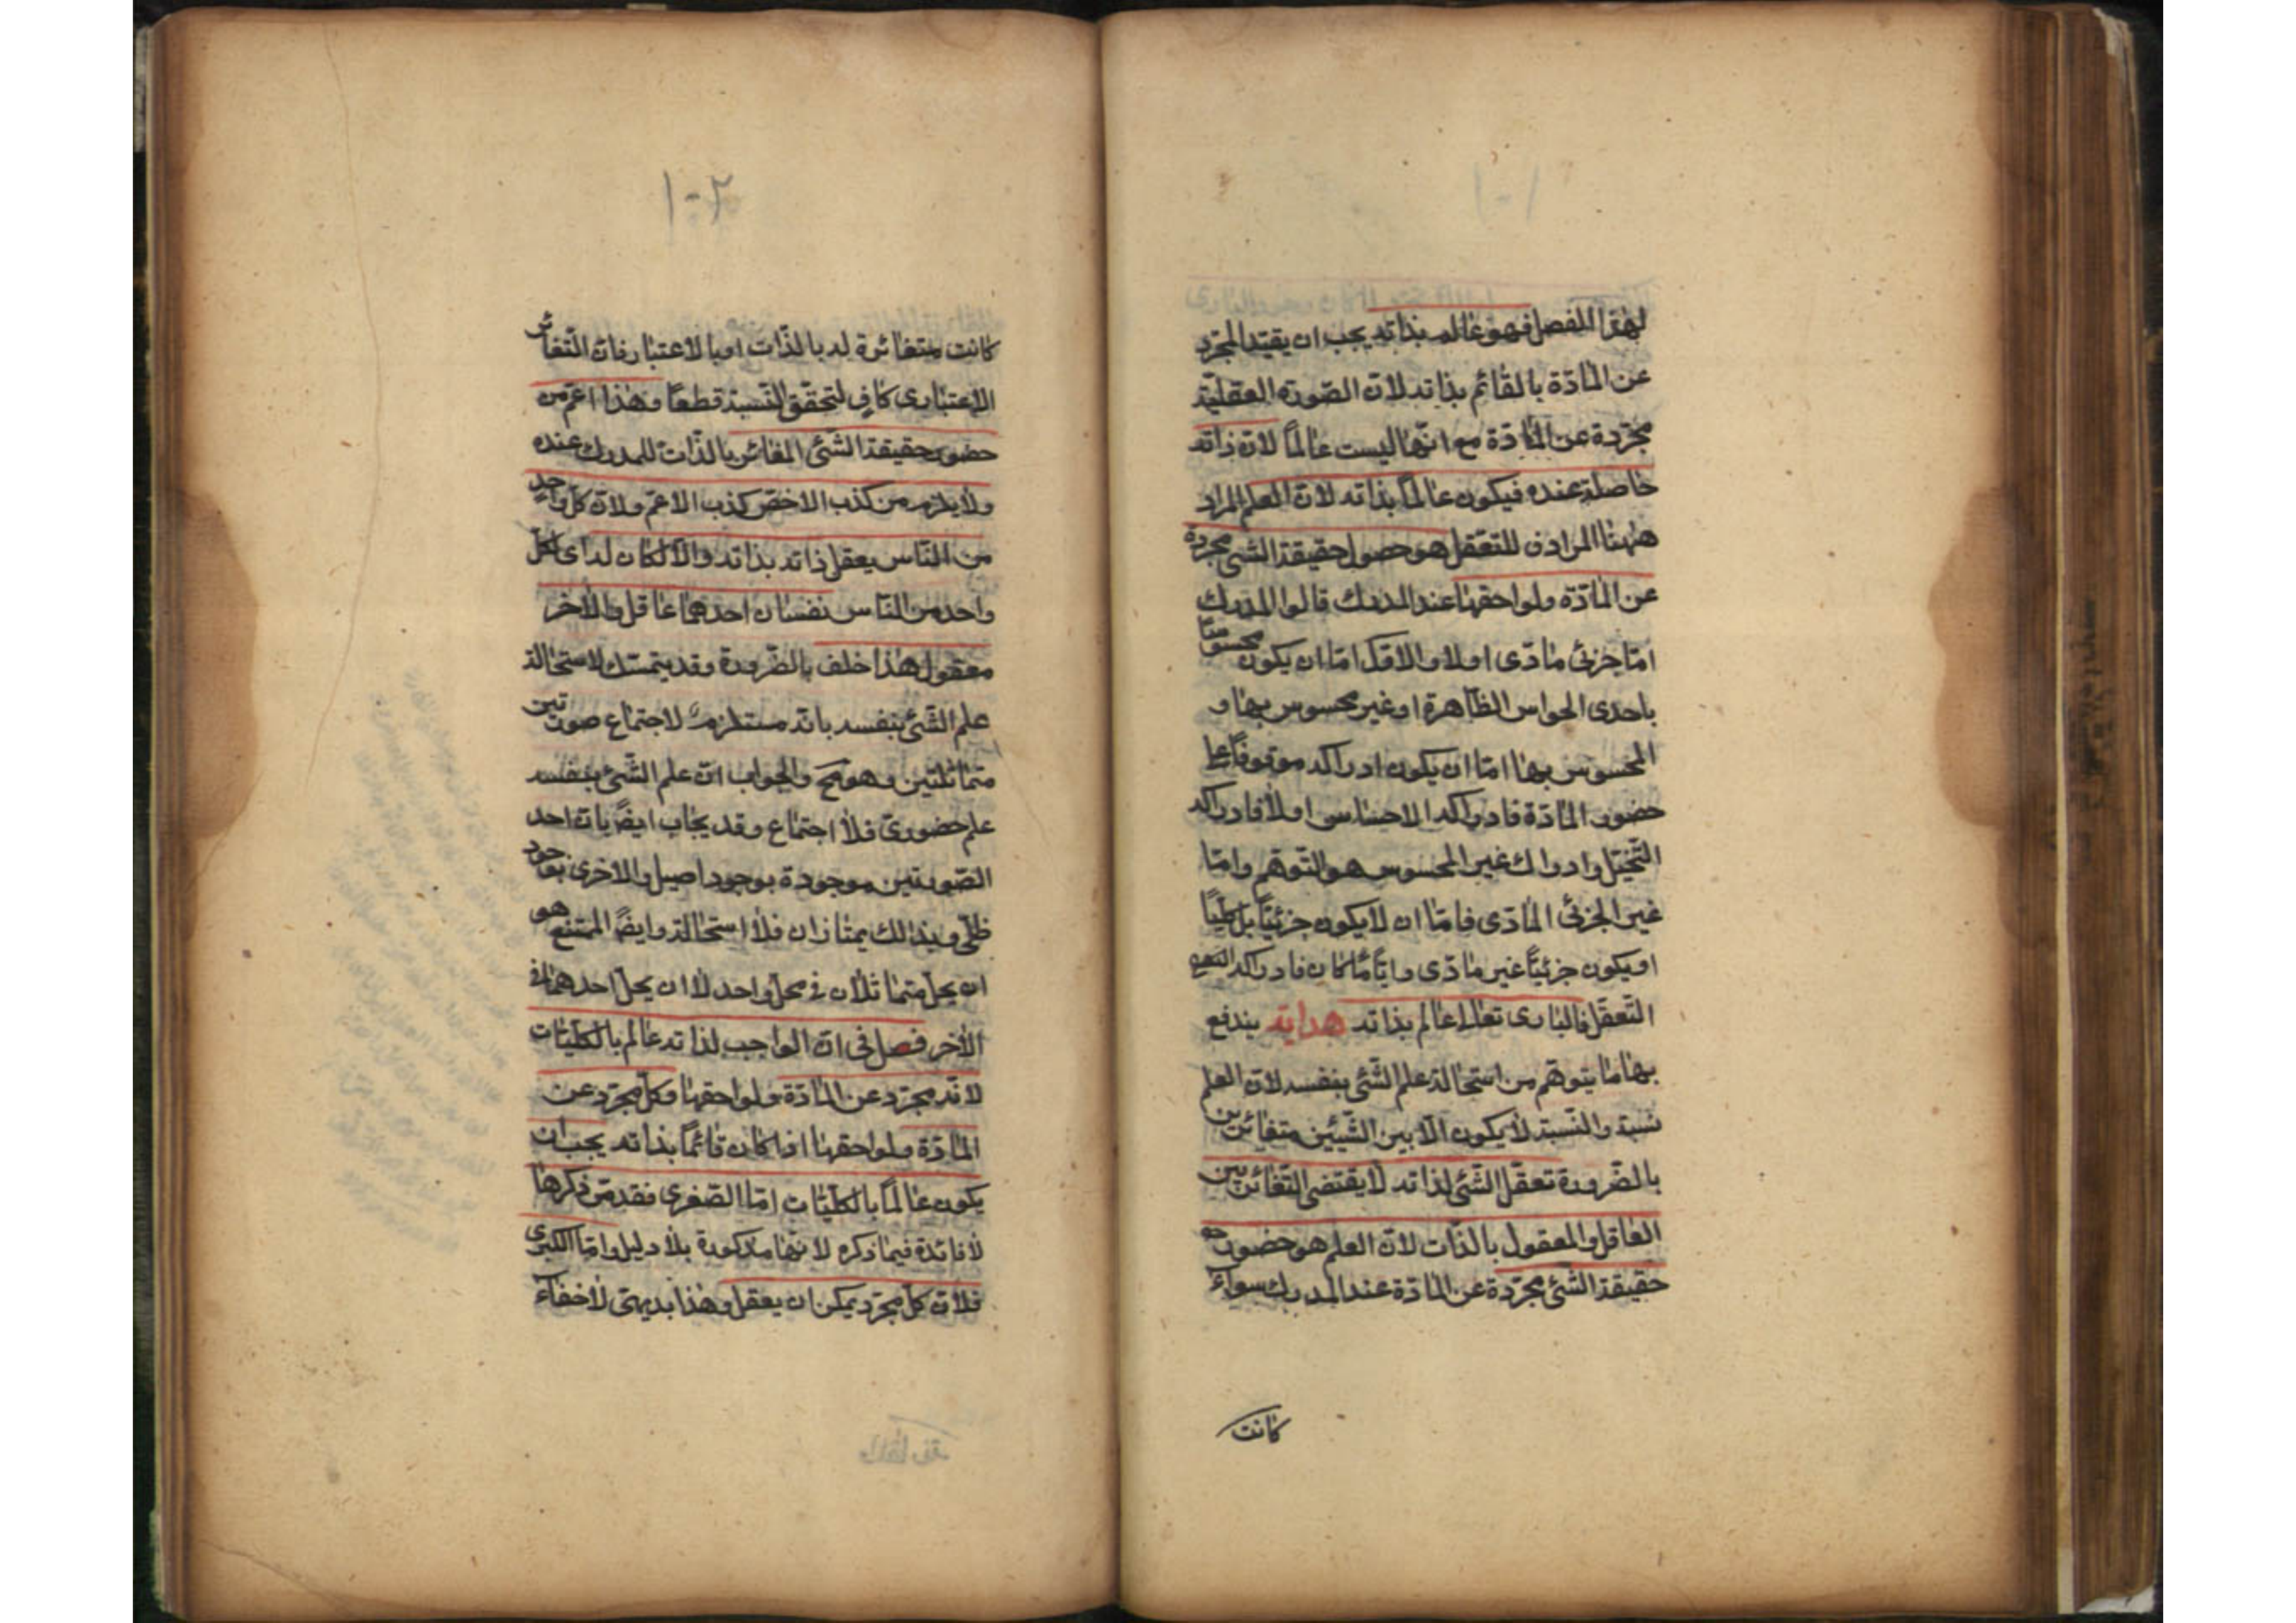 ١٠١
لهذا الفصل فهو عالم بذاته يجب ان يقيّد المجرّد
عن المادّة بالقائم بذاته لانّ الصّورة العقليّة
مجرّدة عن المادّة مع انّها ليست عالماً لانّ ذاته
حاصلة عنده فيكون عالماً بذاته لانّ العلم المراد
ههنا المرادف للتعقّل هو حصول حقيقة الشئ مجرّدة
عن المادّة ولواحقها عند المدرك قالوا المدرك
امّا جزئى مادّى اولا والاوّل امّا ان يكون محسوسا
باحدى الحواس الظاهرة او غير محسوس بها و
المحسوس بها امّا ان يكون ادراكه موقوفاً على
حضور المادّة فادراكه الاحساس او لا فادراكه
التّخيّل وادراك غير المحسوس هو التّوهّم وامّا
غير الجزئى المادّى فامّا ان لا يكون جزئيّاً بل كليّاً
او يكون جزئيّاً غير مادّى وايّاً مّا كان فادراكه
التّعقّل فالبارى تعالى عالم بذاته هداية يندفع
بها ما يتوهّم من استحالة علم الشّئ بنفسه لانّ العلم
نسبة والنّسبة لا يكون الّا بين الشّيئين متغائرين
بالضّرورة تعقّل الشّئ لذاته لا يقتضى التّغائر بين
العاقل والمعقول بالذّات لانّ العلم هو حضور
حقيقة الشّئ مجرّدة عن المادّة عند المدرك سواء
كانت
١٠٢
كانت متغائرة له بالذّات او بالاعتبار فانّ التّغائر
الاعتبارى كافٍ لتحقّق النّسبة قطعاً وهذا اعمّ من
حضور حقيقة الشّئ المغائر بالذّات للمدرك عنده
ولا يلزم من كذب الاخصّ كذب الاعمّ ولانّ كلّ واحد
من النّاس يعقل ذاته بذاته والّا لكان له اى لكلّ
واحد من النّاس نفسان احدهما عاقل والاخر
معقول هذا خلف بالضّرورة وقد يتمسّك لاستحالة
علم الشّئ بنفسه بانّه مستلزم لاجتماع صورتين
متماثلتين وهو مح والجواب انّ علم الشّئ بنفسه
علم حضورىّ فلا اجتماع وقد يجاب ايضً بانّ احد
الصّورتين موجودة بوجود اصيل والاخرى بوجود
ظلّى وبذلك يمتازان فلا استحالة وايضً الممتنع هو
ان يحلّ متماثلان فى محلّ واحد لا ان يحلّ احدهما فى
الاخر فصل فى انّ الواجب لذاته عالم بالكليّات
لانّه مجرّد عن المادّة ولواحقها وكلّ مجرّد عن
المادّة ولواحقها اذا كان قائماً بذاته يجب ان
يكون عالماً بالكليّات امّا الصّغرى فقد مرّ ذكرها
لا فائدة فيما ذكره لانّها مذكورة بلا دليل وامّا الكبرى
فلانّ كلّ مجرّد يمكن ان يعقل وهذا بديهىّ لا خفاء